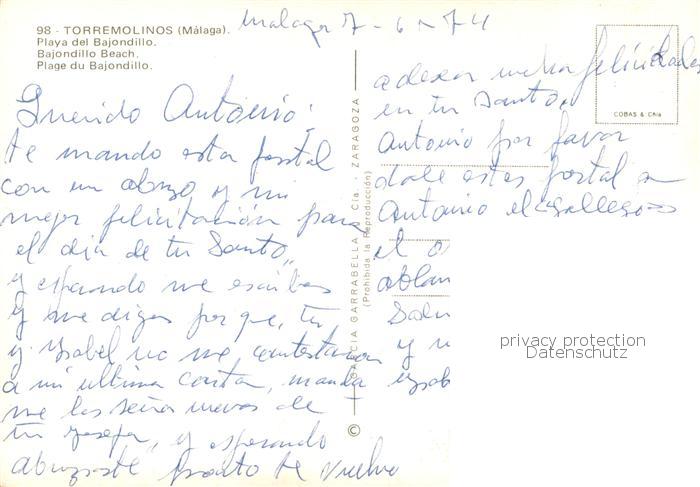 98 - TORREMOLINOS (Málaga).
Playa del Bajondillo.
Bajondillo Beach.
Plage du Bajondillo.
Malaga 7-6-74
Querido Antonio;
te mando esta postal
con un abrazo y mi
mejor felicitación para
el dia de tu Santo,,
y esperando me escribas
y me digas porque, tu
y Ysabel no me contestaron
a mi ultima carta, manda
me las seña nuevas de
tu y esperando
abrazarte pronto te vuelvo
a desear mucha felicidades
en tu Santo,
Antonio por favor
dale estas postal a
Antonio el gallego
el
ablan
Salu
y
Ysab
GARCIA GARRABELLA Y Cía. - ZARAGOZA
(Prohibida la Reproducción)
©
COBAS & Chia
privacy protection
Datenschutz